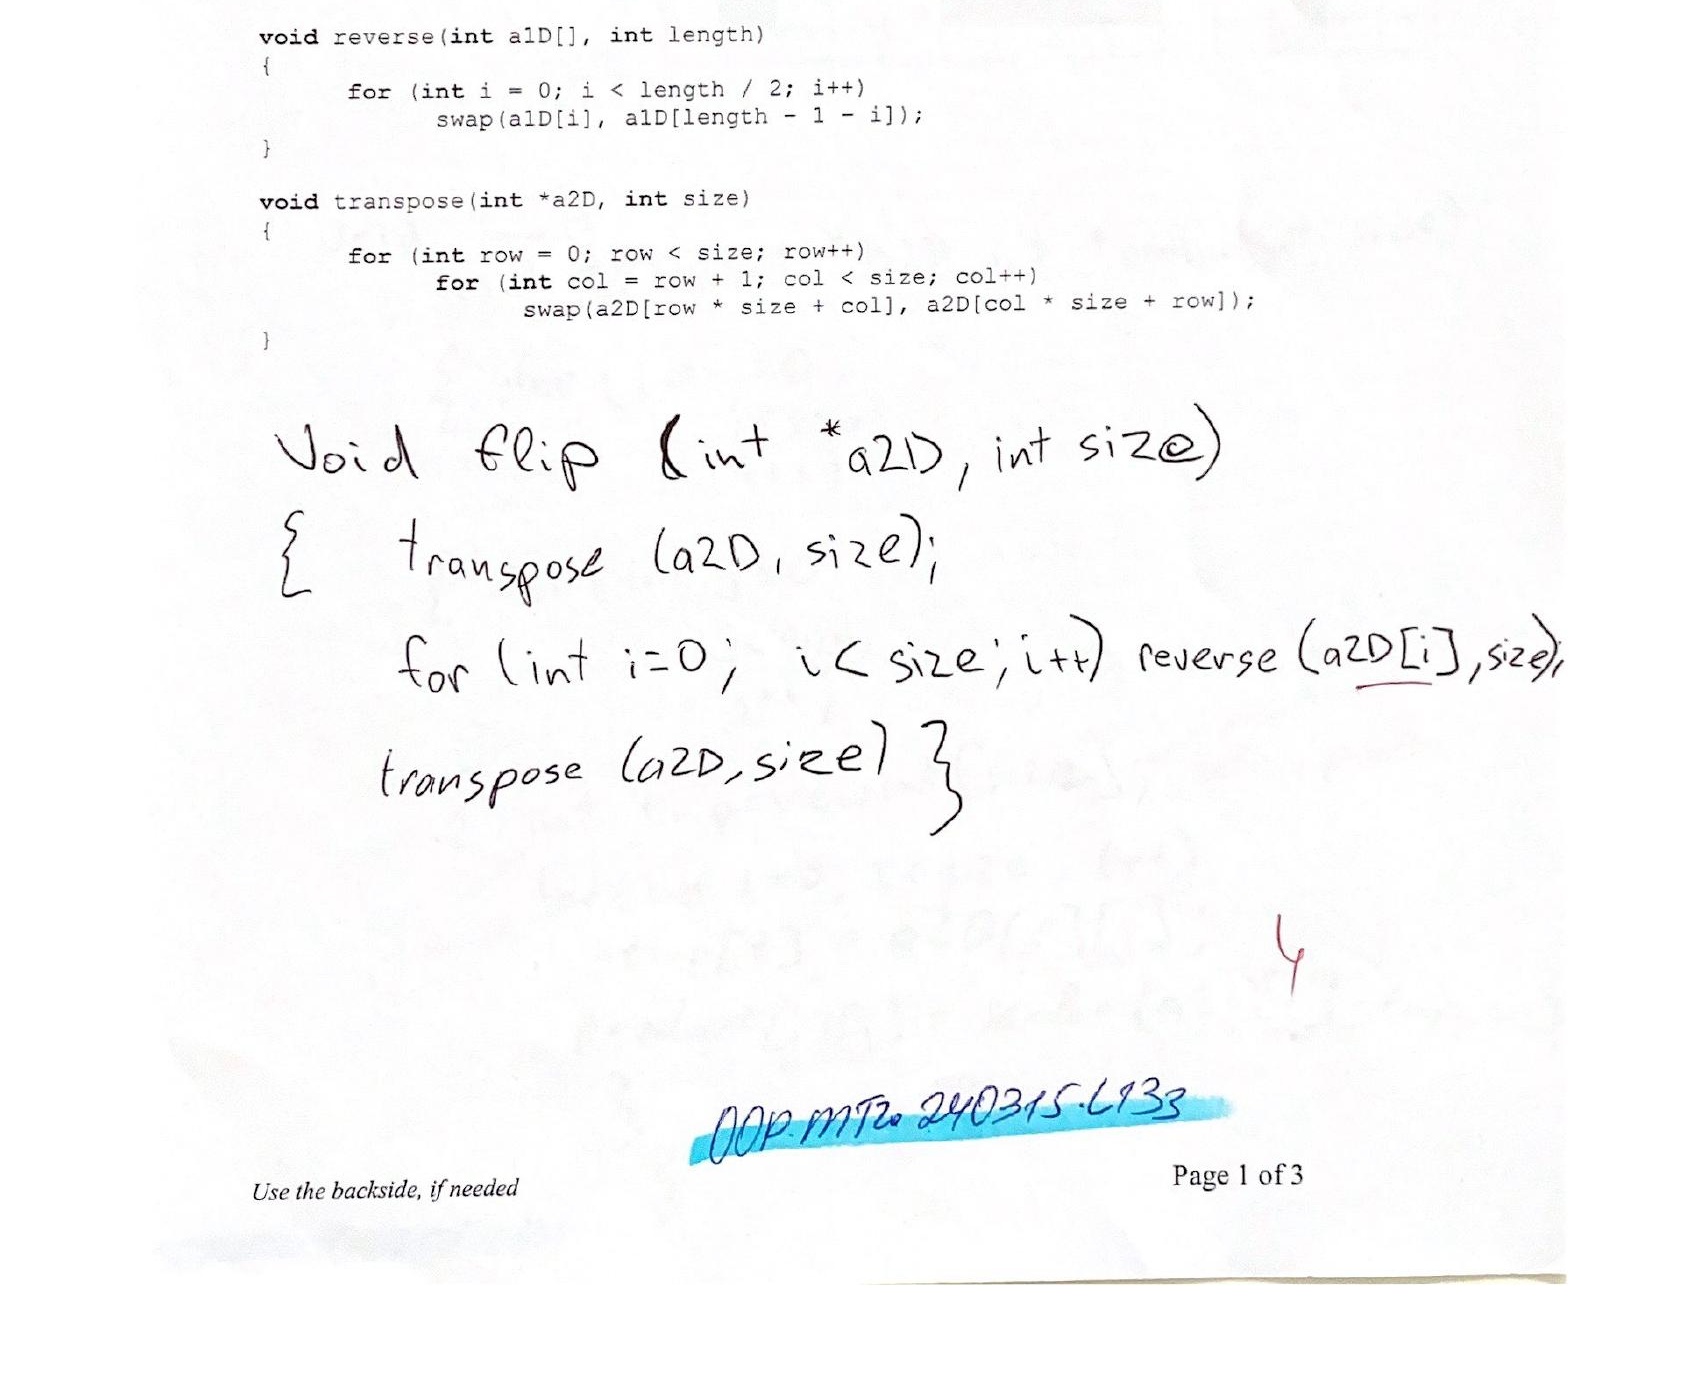 void reverse(int a1D[], int length)
{
for (int i = 0; i < length / 2; i++)
swap(a1D[i], a1D[length - 1 - i]);
}
void transpose(int *a2D, int size)
{
for (int row = 0; row < size; row++)
for (int col = row + 1; col < size; col++)
swap(a2D[row * size + col], a2D[col * size + row]);
}
Void flip (int *a2D, int size)
{ transpose (a2D, size);
for (int i=0; i< size; i++) reverse (a2D[i], size);
transpose (a2D, size) }
4
OOP.MT2.240315.L133
Use the backside, if needed
Page 1 of 3